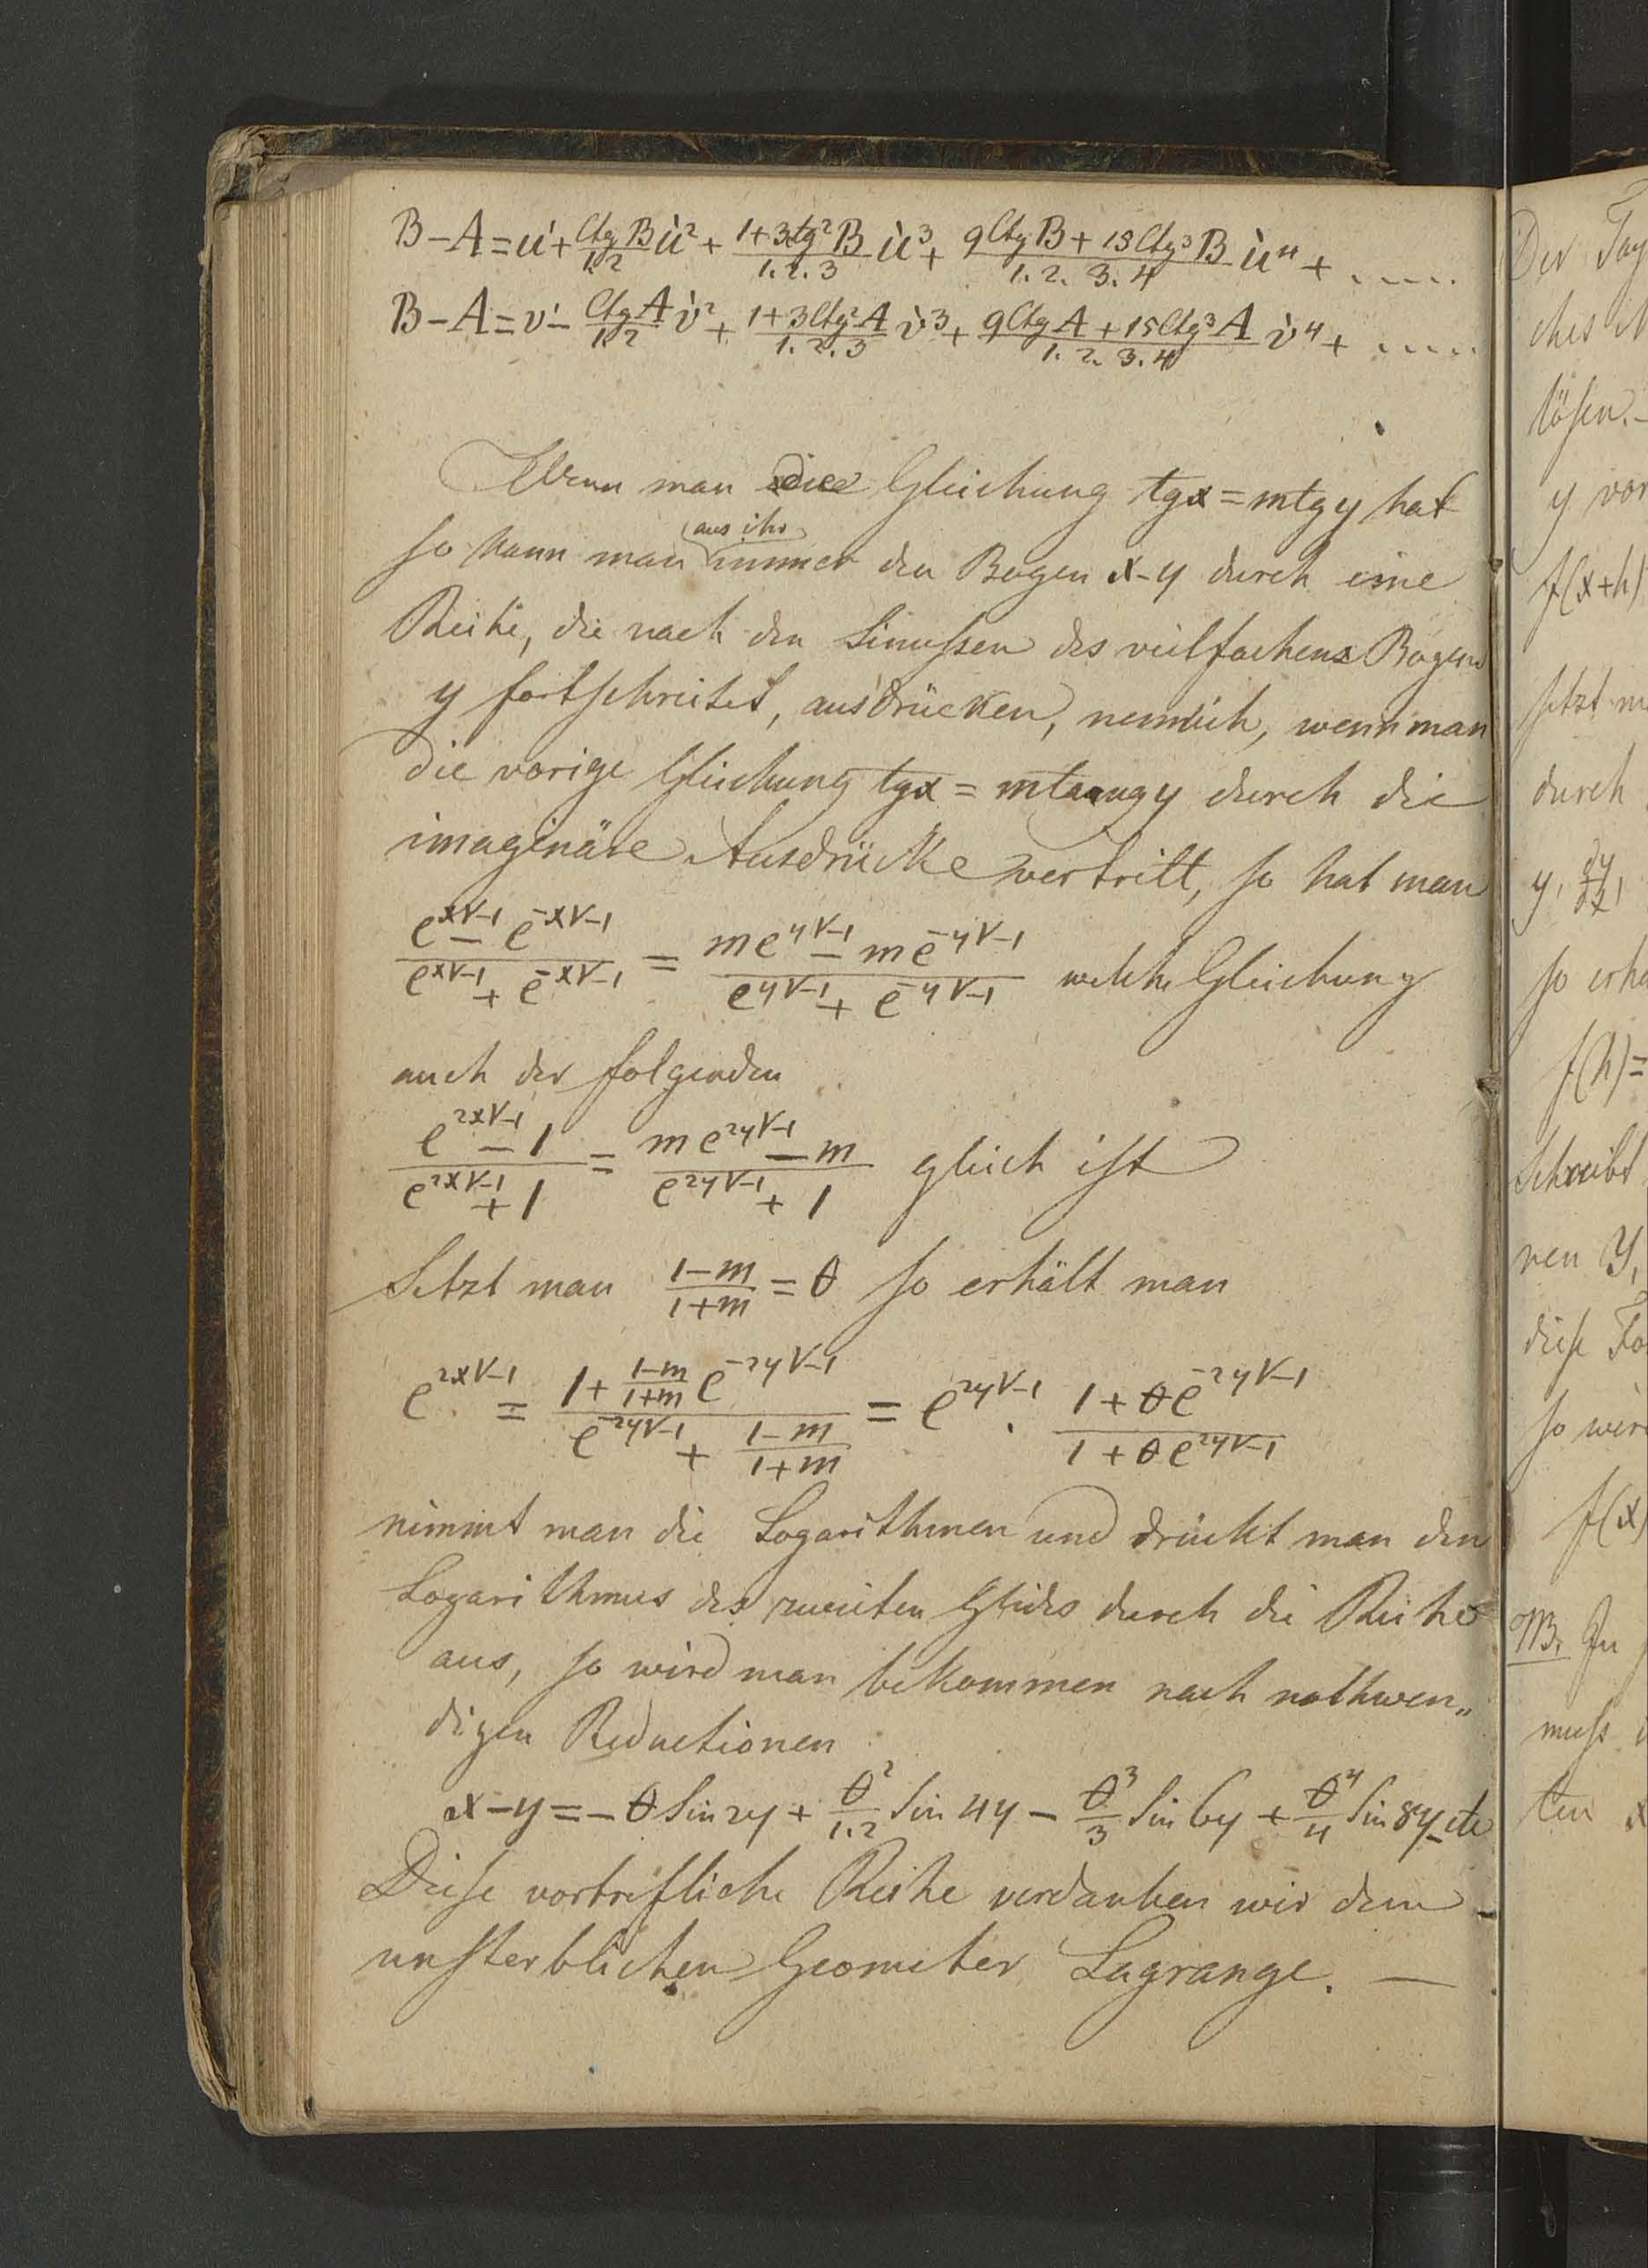 B−A = u' + Ctg B/1.2 u'² + 1+3tg²B/1.2.3 u'³ + 9Ctg B + 15Ctg³B/1.2.3.4 u'⁴ + .....
B−A = v' − Ctg A/1.2 v'² + 1+3Ctg²A/1.2.3 v'³ + 9Ctg A + 15Ctg³A/1.2.3.4 v'⁴ + .....
Wenn man die Gleichung tgx = mtgy hat
so kann man aus ihr immer den Bogen x-y durch eine
Reihe, die nach den Sinussen des vielfachens Bogens
y fortschreitet, ausdrücken, nemlich, wenn man
die vorige Gleichung tgx = mtangy durch die
imaginäre Ausdrücke vertritt, so hat man
e^{x√-1} − e^{-x√-1} / e^{x√-1} + e^{-x√-1} = me^{y√-1} − me^{-y√-1} / e^{y√-1} + e^{-y√-1} welche Gleichung
auch der folgenden
e^{2x√-1} − 1 / e^{2x√-1} + 1 = me^{2y√-1} − m / e^{2y√-1} + 1 gleich ist
Setzt man 1−m/1+m = θ so erhält man
e^{2x√-1} = 1 + 1−m/1+m e^{-2y√-1} / e^{-2y√-1} + 1−m/1+m = e^{2y√-1} . 1 + θe^{-2y√-1} / 1 + θe^{2y√-1}
nimmt man die Logarithmen und drückt man den
Logarithmus des zweiten Glides durch die Reihe
aus, so wird man bekommen nach nothwen„
digen Reductionen
x−y = −θ Sin 2y + θ²/1.2 Sin 4y − θ³/3 Sin 6y + θ⁴/4 Sin 8y − etc
Diese vortrefliche Reihe verdanken wir dem
unsterblichen Geometer Lagrange. —
Der Tay
ches
lösen.-
y vor
f(x+h)
setzt
durch
y, dy/dx,
so erha
f(h)=
Schreibt
ren Y,
diese Fo
so wird
f(x)
NB. In
muss
ten x